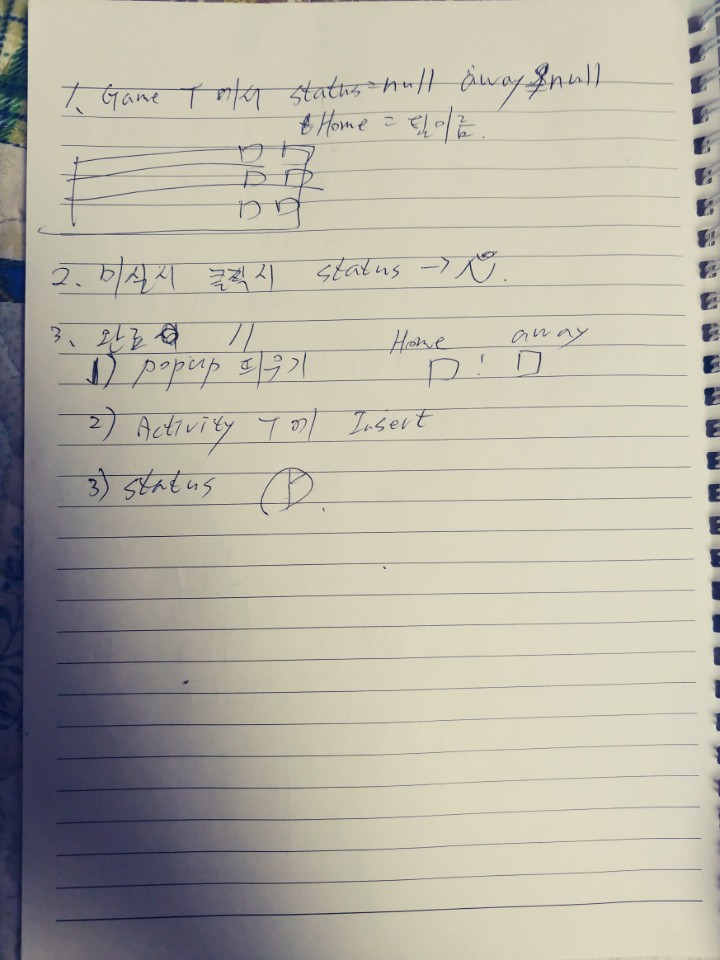 1. Game T 에서 status=null away≠null
& Home = 팀이름.
2. 미실시 클릭시 status → N.
3. 완료 〃
Home away
1) popup 띄우기 □ : □
2) Activity T에 Insert
3) status Y.